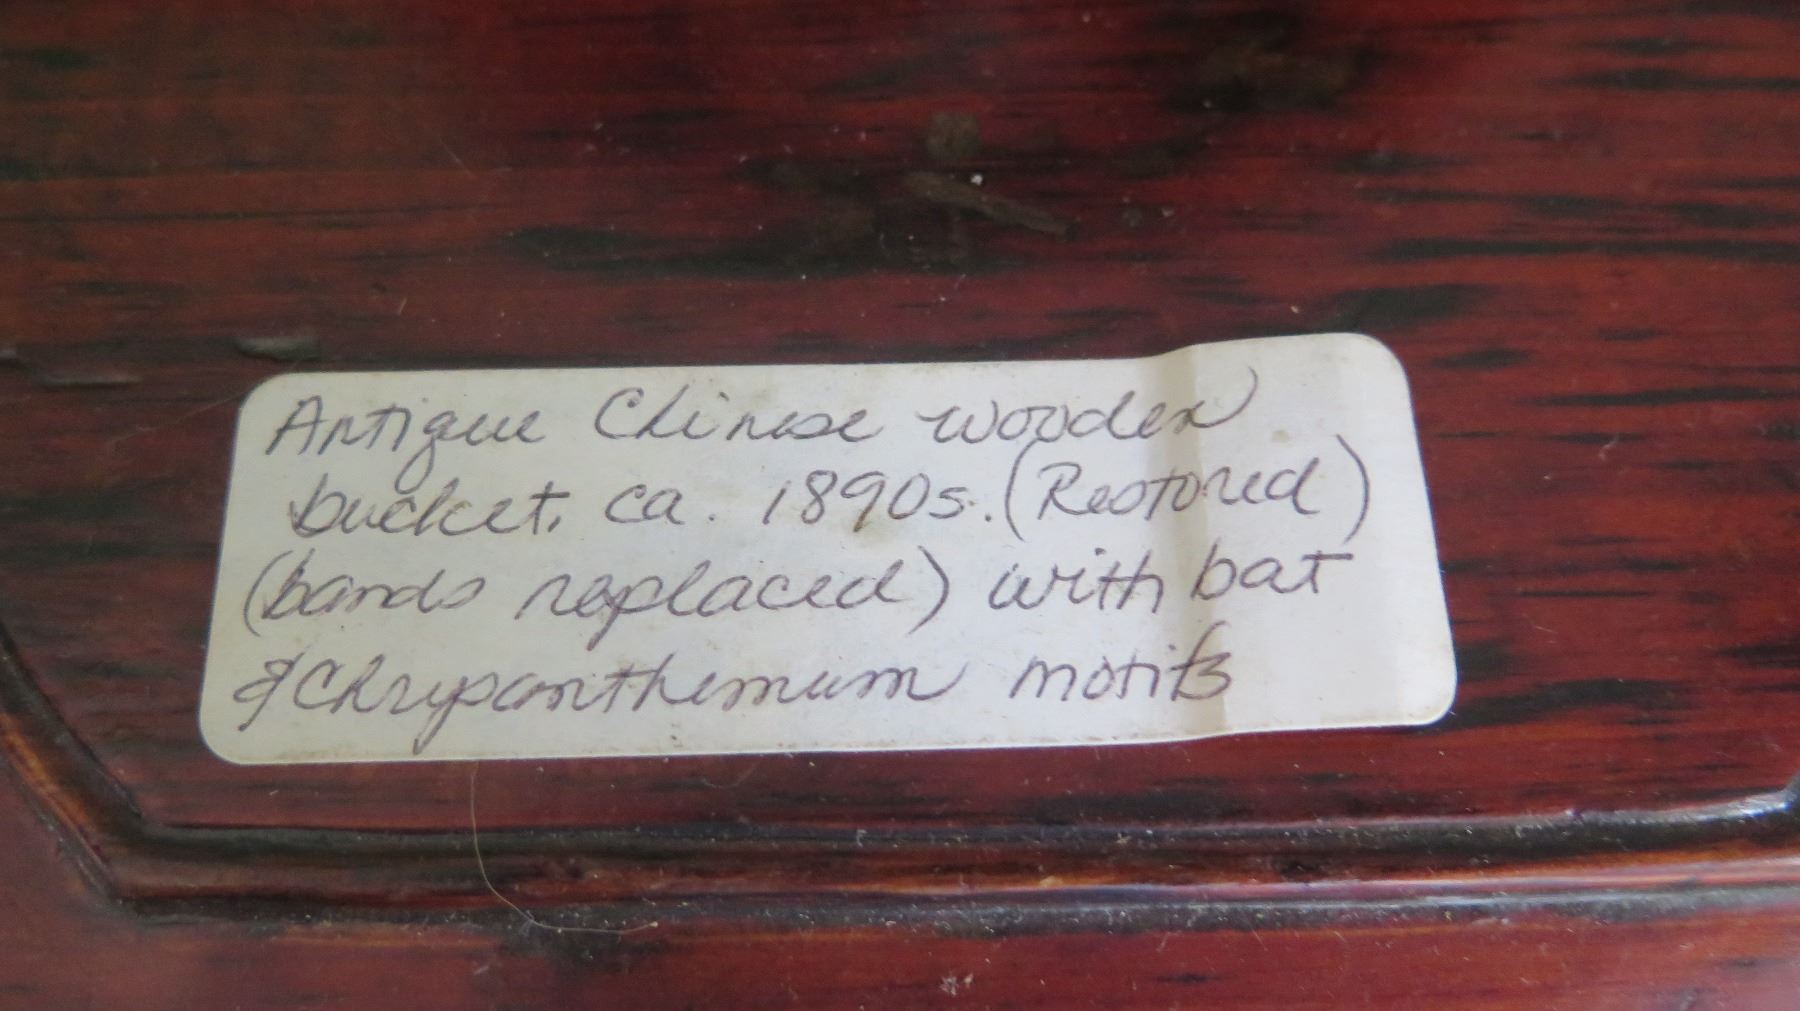 Antique Chinese wooden
bucket, ca. 1890s. (Restored)
(bands replaced) with bat
& Chrysanthemum motifs